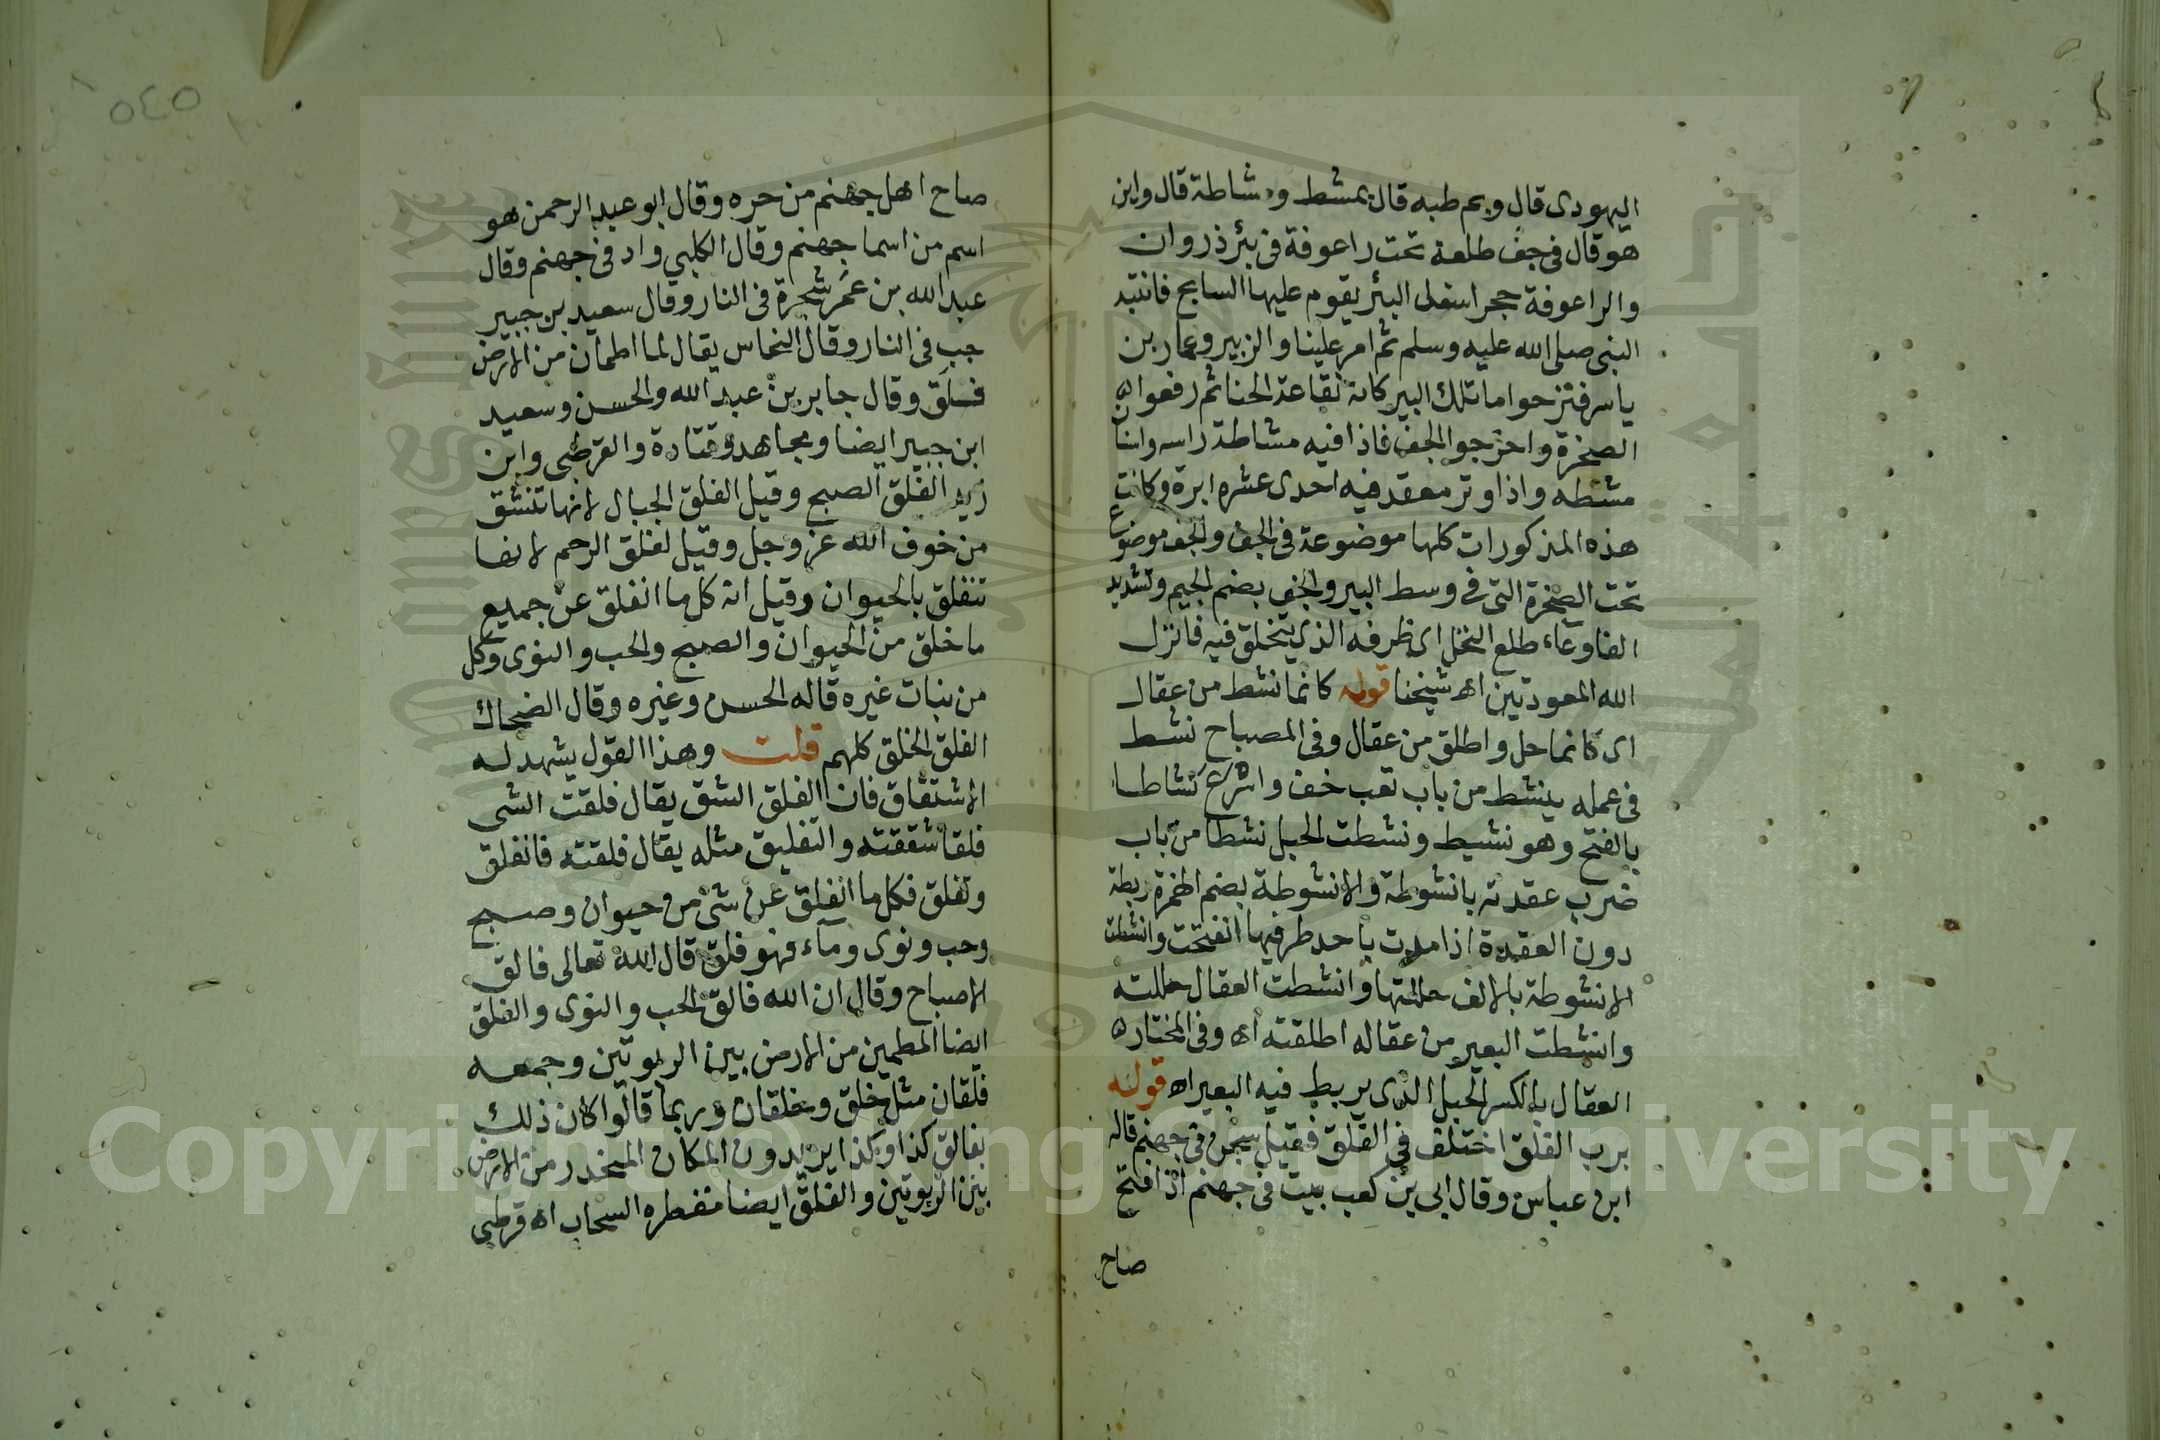 اليهودى قال وبم طبه قال بمشط ومشاطة قال واين
هو قال فى جف طلعة تحت راعوفة فى بئر ذروان
والراعوفة حجر اسفل البئر يقوم عليها السايح فانتبه
النبى صلى الله عليه وسلم ثم امر عليا والزبير وعمار بن
ياسر فنزحوا ما تلك البير كانه نقاعة الحنا ثم رفعوا
الصخرة واخرجوا الجف فاذا فيه مشاطة راسه واسنان
مشطه واذا وتر معقد فيه احدى عشره ابرة وكانت
هذه المذكورات كلها موضوعة فى الجف والجف موضوع
تحت الصخرة التى فى وسط البير والجف بضم الجيم وتشديد
الفا وعاء طلع النخل اى ظرفه الذى يتخلق فيه فانزل
الله المعودتين اه شيخنا قوله كانما نشط من عقال
اى كانما حل واطلق من عقال وفى المصباح نشط
فى عمله ينشط من باب تعب خف واسرع نشاطا
بالفتح وهو نشيط ونشطت الحبل نشطا من باب
ضرب عقدته بانشوطة والانشوطة بضم الهمزة ربطة
دون العقدة اذا مدت باحد طرفيها انفتحت وانشطت
الانشوطة بالالف حللتها وانشطت العقال حللته
وانشطت البعير من عقاله اطلقته اه وفى المختار
العقال بالكسر الحبل الذى يربط فيه البعير اه قوله
برب الفلق اختلف فى الفلق فقيل سجن فى جهنم قاله
ابن عباس وقال ابى بن كعب بيت فى جهنم اذا فتح
صاح
٥٤٥
صاح اهل جهنم من حره وقال ابو عبد الرحمن هو
اسم من اسما جهنم وقال الكلبي واد فى جهنم وقال
عبد الله بن عمر شجرة فى النار وقال سعيد بن جبير
جب فى النار وقال النحاس يقال لما اطمان من الارض
فلق وقال جابر بن عبد الله والحسن وسعيد
ابن جبير ايضا ومجاهد وقتادة والقرظى وابن
زيد الفلق الصبح وقيل الفلق الجبال لانها تنشق
من خوف الله عز وجل وقيل لفلق الرحم لانها
تنفلق بالحيوان وقيل انه كل ما انفلق عن جميع
ما خلق من الحيوان والصبح والحب والنوى وكل
من نبات غيره قاله الحسن وغيره وقال الضحاك
الفلق الخلق كلهم قلت وهذا القول يشهد له
الاشتقاق فان الفلق الشق يقال فلقت الشى
فلقا شققته والتفليق مثله يقال فلقته فانفلق
وتفلق فكل ما انفلق عن شئ من حيوان وصبح
وحب ونوى وماء فهو فلق قال الله تعالى فالق
الاصباح وقال ان الله فالق الحب والنوى والفلق
ايضا المطمين من الارض بين الربوتين وجمعه
فلقان مثل خلق وخلقان وربما قالوا كان ذلك
بفالق كذا وكذا يريدون المكان المنحدر من الارض
بين الربوتين والفلق ايضا مقطره السحاب اه قرطبى
Copyright © King Saud University